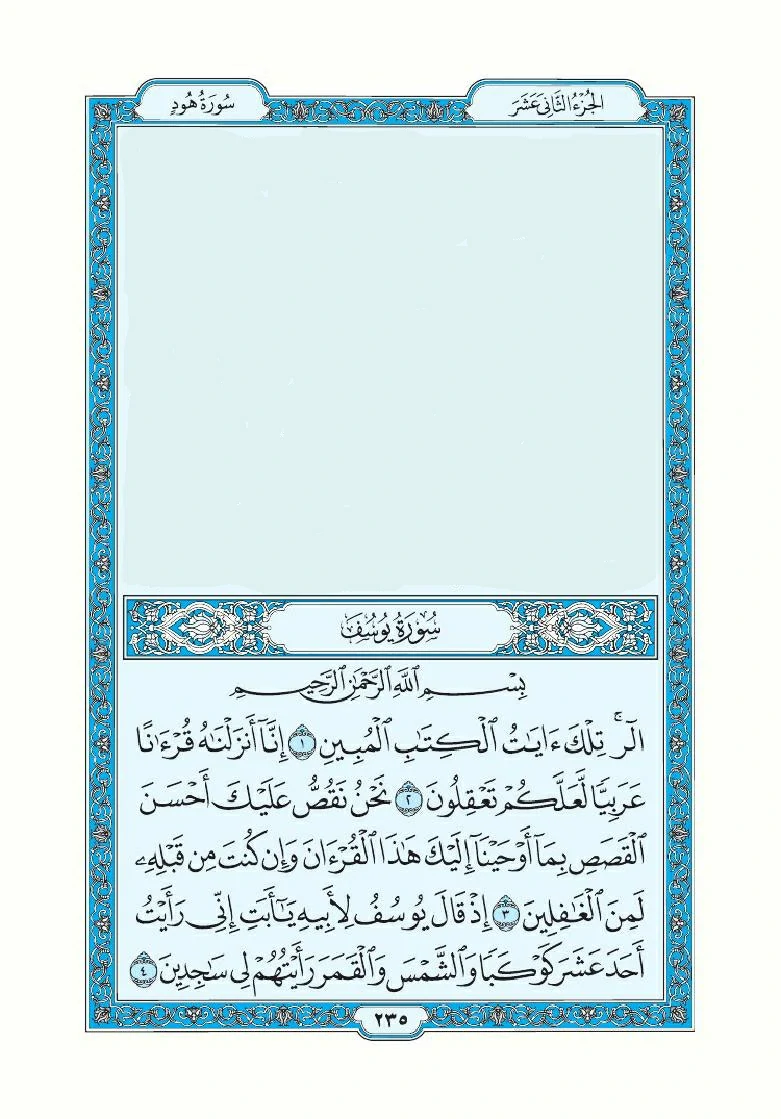 الجُزْءُ الثَّانِي عَشَرَ
سُورَةُ هُودٍ
سُورَةُ يُوسُفَ
بِسْمِ ٱللَّهِ ٱلرَّحْمَٰنِ ٱلرَّحِيمِ
الٓرۚ تِلْكَ ءَايَٰتُ ٱلْكِتَٰبِ ٱلْمُبِينِ ١ إِنَّآ أَنزَلْنَٰهُ قُرْءَٰنًا
عَرَبِيًّا لَّعَلَّكُمْ تَعْقِلُونَ ٢ نَحْنُ نَقُصُّ عَلَيْكَ أَحْسَنَ
ٱلْقَصَصِ بِمَآ أَوْحَيْنَآ إِلَيْكَ هَٰذَا ٱلْقُرْءَانَ وَإِن كُنتَ مِن قَبْلِهِۦ
لَمِنَ ٱلْغَٰفِلِينَ ٣ إِذْ قَالَ يُوسُفُ لِأَبِيهِ يَٰٓأَبَتِ إِنِّى رَأَيْتُ
أَحَدَ عَشَرَ كَوْكَبًا وَٱلشَّمْسَ وَٱلْقَمَرَ رَأَيْتُهُمْ لِى سَٰجِدِينَ ٤
٢٣٥